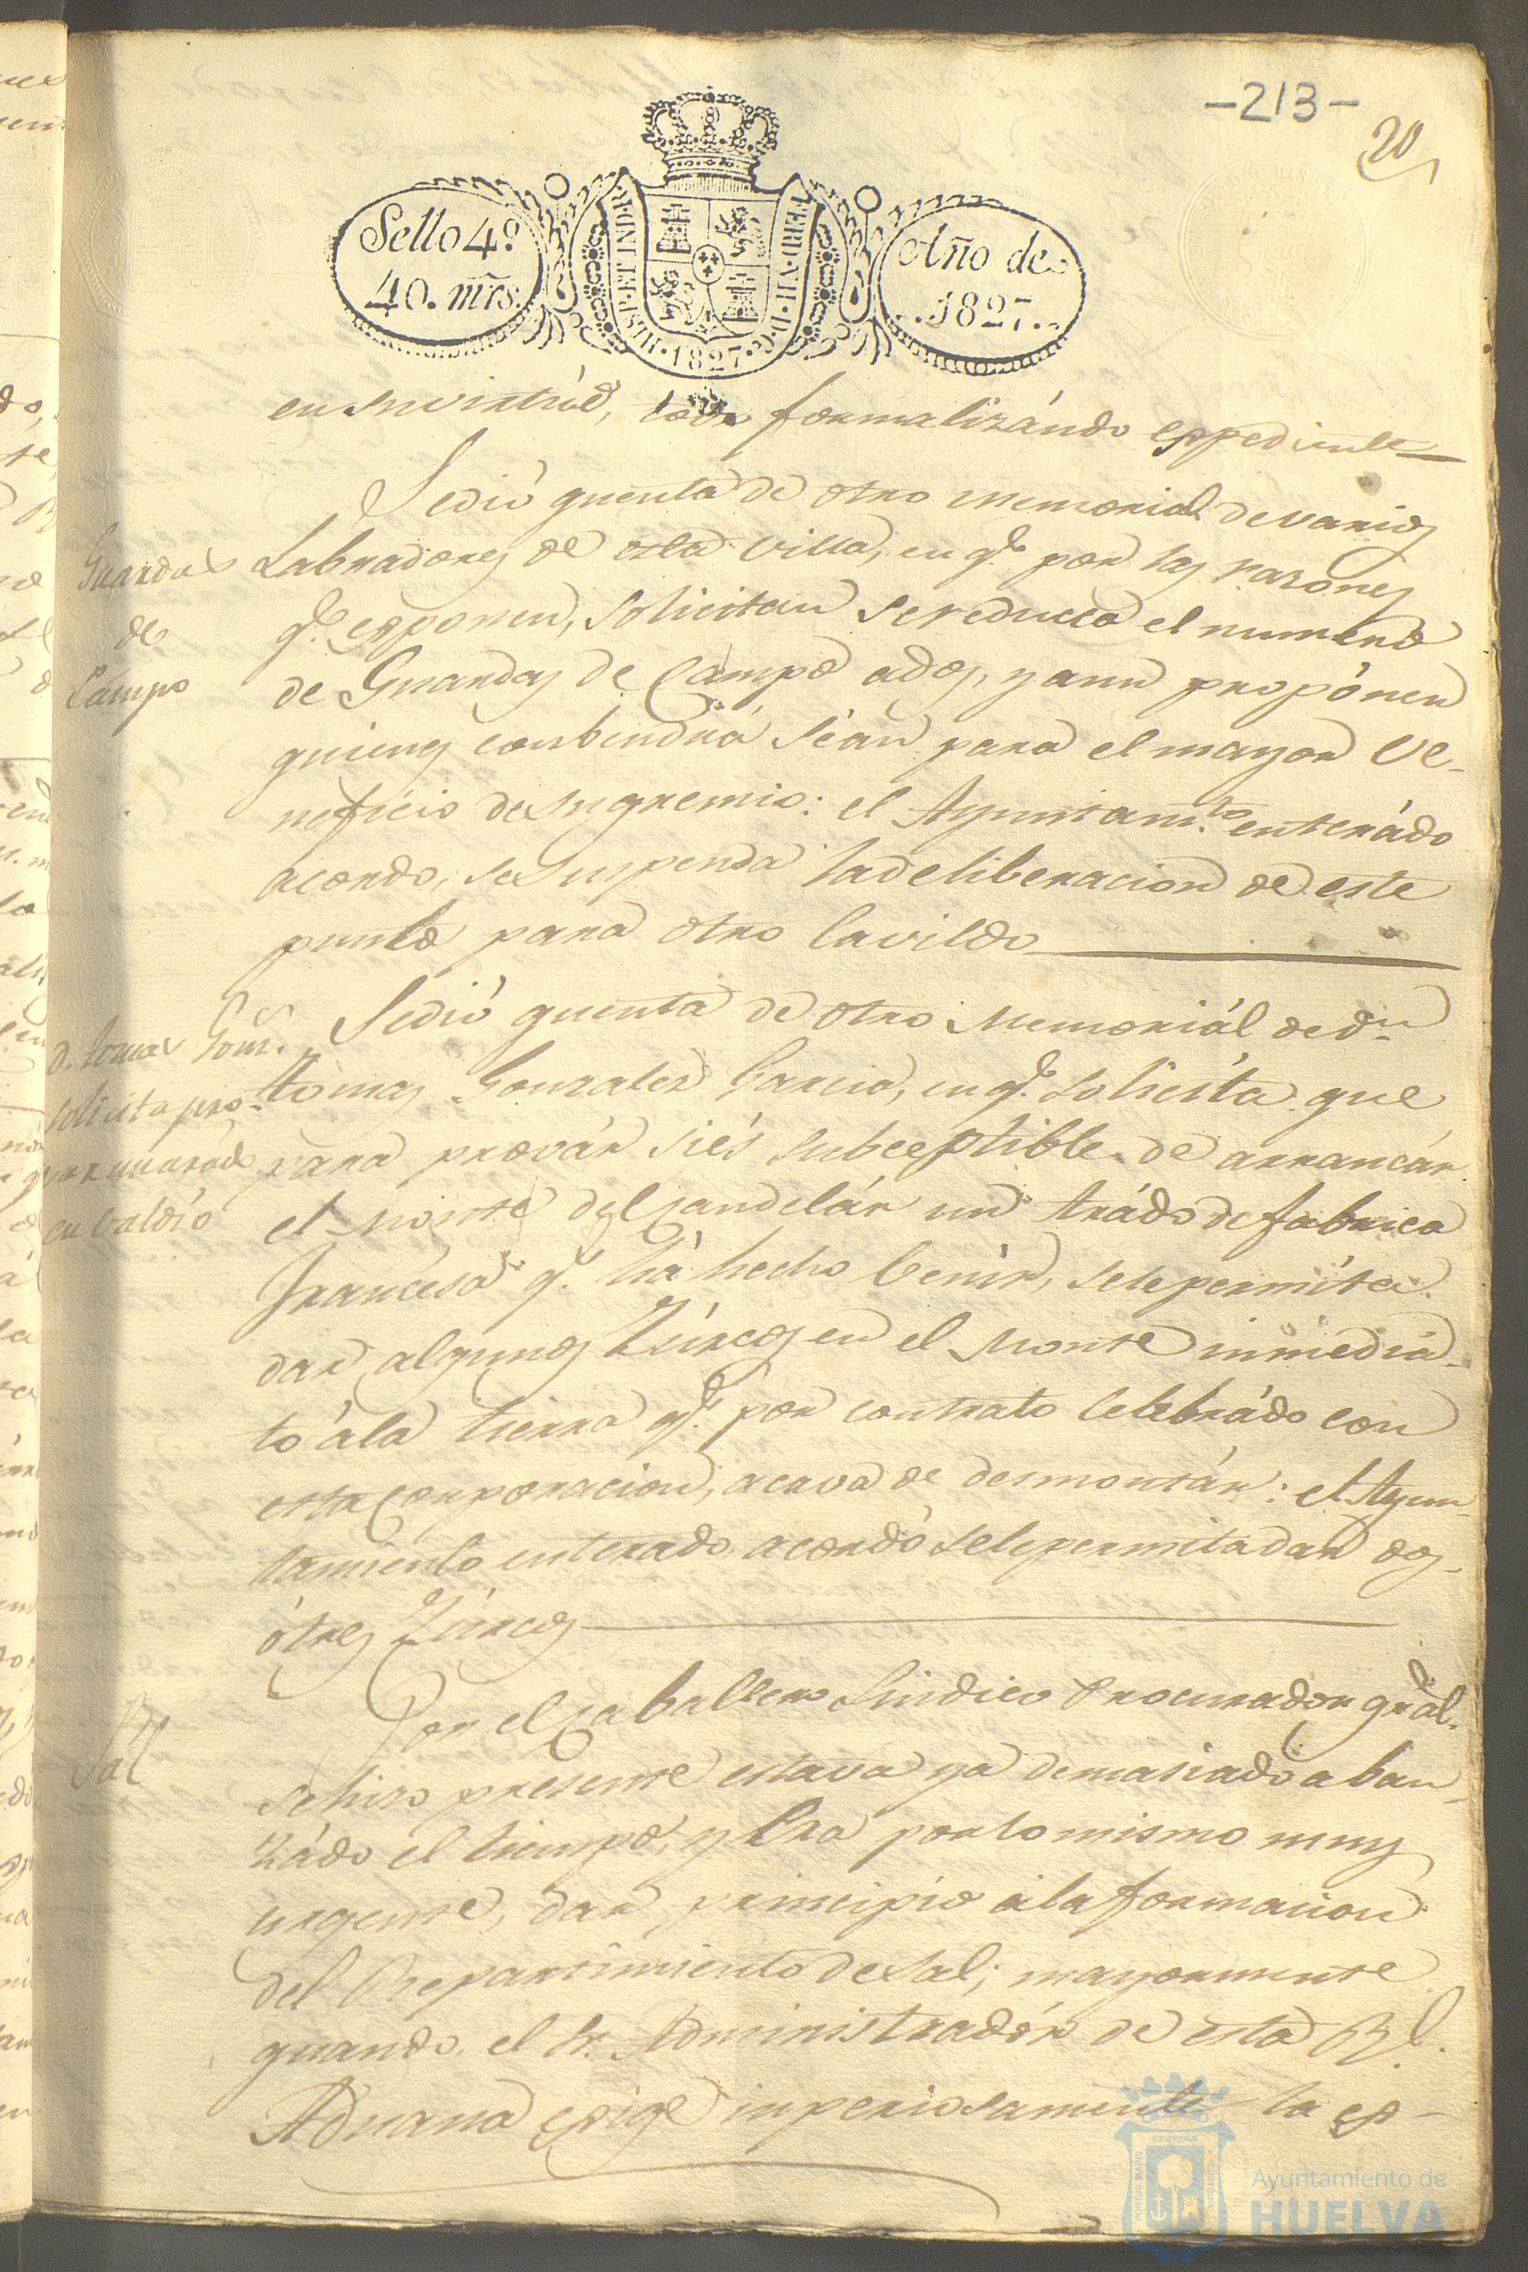 -213-
20
Sello 4º
40. mrs.
HISP. ET IND. R.
FERD. VII. D. G.
1827
Año de
1827.
en su virtúd, todo formalizándo espediente
Guardas
de
Campo
Se dió quenta de otro memorial de varios
Labradores de esta Villa, en qe. por las razones
qe. esponen, solicitan se reduzca el numero
de Guardas de Campo a dos, y aun propónen
quienes conbendrá séan para el mayor Ve-
neficio de su gremio: el Ayuntamto. enterádo
acordo, se suspenda la deliberacion de este
punto para otro Cavildo
D. Tomas Gons.
solicita pro-
var un arádo
en valdío
Se dió quenta de otro Memoriál de dn.
Tomas Gonzalez Garcia, en qe. solicíta que
para provár si és subceptible de arrancár
el monte del Candelár un arádo de fabrica
Francesa qe. há hecho Venír, se le permíta
dar algunos Zúrcos en el Monte inmediá-
to á la tierra qe. por contrato Celebrádo con
esta Corporacion, acava de desmontár: el Ayun-
tamiento enterado acordó se le permita dar dos
ó tres Zúrcos
Sal
Por el Caballero Sindico Procurador gral.
se hizo presente estava ya demasiado aban-
zádo el tiempo, y Era por lo mismo muy
urgente, dar principio a la formacion
del Repartimiento de Sal; mayormente
quando el Sr. Administradór de esta Rl.
Aduana esige inperiosamente la es-
PORTUS MARIS
ET TERRÆ
CUSTODIA
Ayuntamiento de
HUELVA